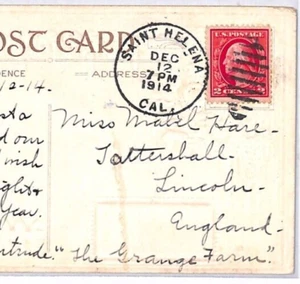 OST CARD
ENCE
ADDRESS
SAINT HELENA
DEC
12
7 PM
1914
CAL.
U.S. POSTAGE
2 CENTS 2
2-14.
Miss Mabel Hare-
Tattershall-
Lincoln-
England-
"The Grange Farm."
sta
d our
wish
ight &
Year.
trude.